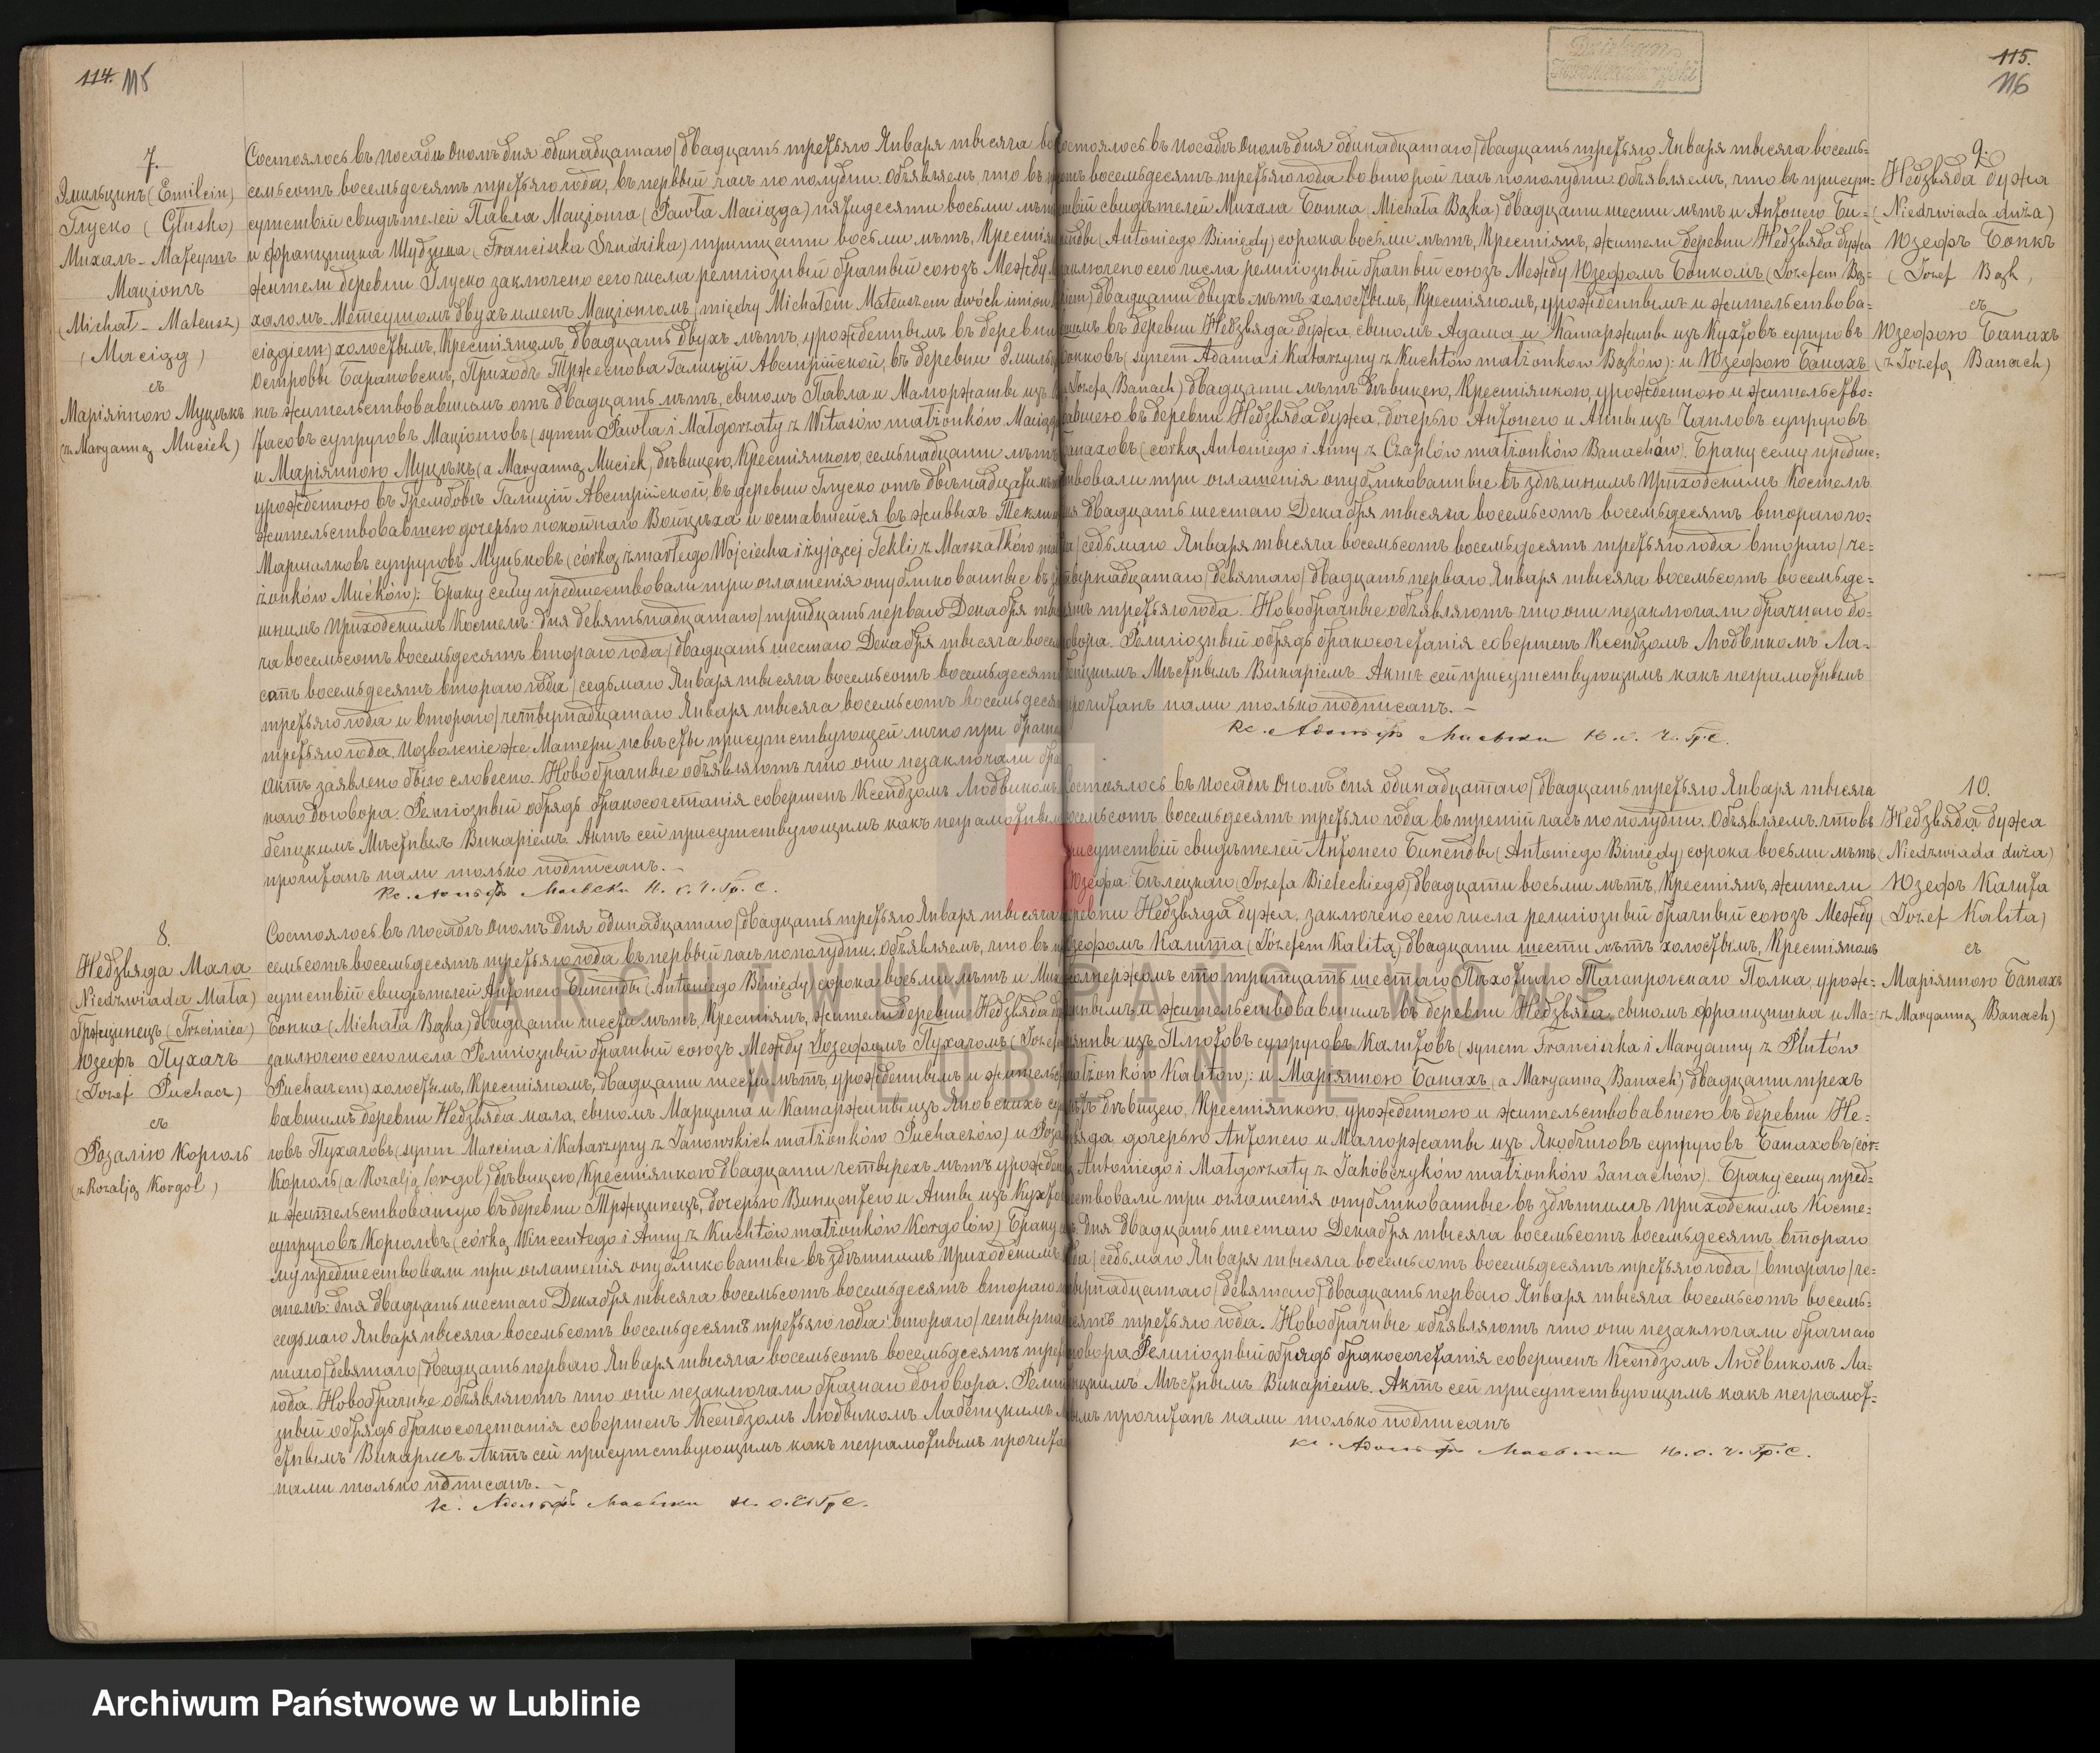 114. 115
7.
Эмильцинъ (Emilcin)
Глуско (Głusko)
Михалъ-Матеушъ
Маціонгъ
(Michał-Mateusz)
(Maciąg)
съ
Маріянною Муцѣкъ
(z Maryanną Muciek)
Состоялось въ посадѣ Ополѣ дня одинадцатаго/двадцать третьяго Января тысяча во
семьсотъ восемьдесятъ третьяго года, въ первый часъ по полудни. Объявляемъ, что въ
сутствіи свидѣтелей Павла Маціонга (Pawła Maciąga) пятидесяти восьми лѣтъ
и Францишка Шудзика (Franciszka Szudzika) тритцати восьми лѣтъ, Крестьянъ
жители деревни Глуско заключено сего числа религіозный брачный союзъ Между
халомъ-Матеушомъ двухъ именъ Маціонгомъ (między Michałem Mateuszem dwóch imion
ciągiem) холостымъ, Крестіяномъ, двадцать двухъ лѣтъ, урожденнымъ въ деревни
Островы Барановски, Приходъ Тржеснова Галиціи Австрійской, въ деревни Эмильц
нъ жительствовавшымъ отъ двадцать лѣтъ, сыномъ Павла и Малгоржаты изъ
тасовъ супруговъ Маціонговъ (synem Pawła i Małgorzaty z Witasów małżonków Maciąg
и Маріянною Муцѣкъ (a Maryanną Muciek) дѣвицею, Крестіянкою, семьнадцати лѣтъ
урожденною въ Грембовѣ Галиціи Австрійской, въ деревни Глуско отъ двѣнадцати
жительствовавшею дочерью покойнаго Войцѣха и оставшейся въ живыхъ Текли
Маршалковъ супруговъ Муцьковъ (córką zmarłego Wojciecha i żyjącej Tekli z Marszałków mał
żonków Mućków): Браку сему предшествовали три оглашенія опубликованные въ
шнимъ Приходскимъ Костелѣ: дня девятьнадцатаго/тридцать перваго Декабря
ча восемьсотъ восемьдесятъ втораго года/двадцать шестаго Декабря тысяча восем
сотъ восемьдесятъ втораго года/седьмаго Января тысяча восемьсотъ восемьдесятъ
третьяго года и втораго/четвернадцатаго Января тысяча восемьсотъ восемьдесят
третьяго года. Позволеніе же Матери невѣсты присутствующей лично при брачн
Актѣ заявлено было словесно. Новобрачные объявляютъ что они незаключали бра
наго договора. Религіозный обрядъ бракосочетанія совершенъ Ксендзомъ Людвикомъ
беницкимъ Мѣстнымъ Викаріемъ. Актъ сей присутствующимъ какъ неграмотным
прочитанъ нами только подписанъ. –
Кс. Адольфъ Маевски Н. С. Ч. Гр. С.
8.
Недзвяда Мала
(Niedzwiada Mała)
Тржцинецъ (Trzciniec)
Юзефъ Пухачъ
(Jozef Puchacz)
съ
Розалію Король
(z Rozalją Korgol)
Состоялось въ посадѣ Ополѣ дня одинадцатаго/двадцать третьяго Января тысяча
семьсотъ восемьдесятъ третьяго года въ первый часъ по полудни. Объявляемъ, что въ
сутствіи свидѣтелей Антонего Бинѣнды (Antoniego Biniędy) сорока восьми лѣтъ и Мих
Бонка (Michała Bąka) двадцати шести лѣтъ, Крестіянъ, жители деревни Недзвяда
заключено сего числа Религіозный брачный союзъ Между Юзефомъ Пухачомъ (Jozef
Puchaczem) холостымъ, Крестіяномъ, двадцати шести лѣтъ, урожденнымъ и жительс
вавшимъ деревни Недзвяда мала, сыномъ Марцина и Катаржины изъ Яновскихъ суп
говъ Пухачовъ (synem Marcina i Katarzyny z Janowskich małżonków Puchaczów) и Роза
Король (a Rozalją Korgol) дѣвицею, Крестіянкою двадцати четырехъ лѣтъ урожден
и жительствованную въ деревни Тржцинецъ, дочерью Винцентего и Анны изъ Кухтов
супруговъ Королѣвъ (córką Wincentego i Anny z Kuchtów małżonków Korgolów) Браку
му предшествовали три оглашенія опубликованные въ здѣшнимъ Приходскимъ
стелѣ: дня двадцать шестаго Декабря тысяча восемьсотъ восемьдесятъ втораго
седьмаго Января тысяча восемьсотъ восемьдесятъ третьяго года втораго/четверна
таго/девятаго/двадцать перваго Января тысяча восемьсотъ восемьдесятъ трет
года. Новобрачные объявляютъ что они незаключали брачнаго договора. Религ
зный обрядъ бракосочетанія совершенъ Ксендзомъ Людвикомъ Лабеницкимъ
стнымъ Викаріемъ. Актъ сей присутствующимъ какъ неграмотнымъ прочита
нами только подписанъ. –
Кс. Адольфъ Маевски Н. С. Ч. Гр. С.
115.
116
9.
Недзвяда дужа
(Niedzwiada duża)
Юзефъ Бонкъ
(Jozef Bąk)
съ
Юзефою Банахъ
(z Jozefą Banach)
остоялось въ посадѣ Ополѣ дня одинадцатаго/двадцать третьяго Января тысяча восемь-
сотъ восемьдесятъ третьяго года во второй часъ по полудни. Объявляемъ, что въ присут-
твіи свидѣтелей Михала Бонка (Michała Bąka) двадцати шести лѣтъ и Антонего Би-
нѣнды (Antoniego Biniędy) сорока восьми лѣтъ, Крестіянъ, жители деревни Недзвяда дужа
заключено сего числа религіозный брачный союзъ Между Юзефомъ Бонкомъ (Jozefem Bą-
kiem) двадцати двухъ лѣтъ холостымъ, Крестіяномъ, урожденнымъ и жительствова-
шимъ въ деревни Недзвяда дужа, сыномъ Адама и Катаржины изъ Кухтовъ супруговъ
Бонковъ (synem Adama i Katarzyny z Kuchtów małżonkow Bąków): и Юзефою Банахъ
Jozefą Banach) двадцати лѣтъ дѣвицею, Крестіянкою, урожденною и жительство-
вавшею въ деревни Недзвяда дужа, дочерью Антонего и Анны изъ Чапловъ супруговъ
Банаховъ (córką Antoniego i Anny z Czaplów małżonków Banachów). Браку сему предше-
твовали три оглашенія опубликованные въ здѣшнимъ Приходскимъ Костелѣ
ня двадцать шестаго Декабря тысяча восемьсотъ восемьдесятъ втораго го-
да/седьмаго Января тысяча восемьсотъ восемьдесятъ третьяго года втораго/че-
твернадцатаго/девятаго/двадцать перваго Января тысяча восемьсотъ восемьде-
сятъ третьяго года. Новобрачные объявляютъ что они незаключали брачнаго до-
говора. Религіозный обрядъ бракосочетанія совершенъ Ксендзомъ Людвикомъ Ла-
беницкимъ Мѣстнымъ Викаріемъ. Актъ сей присутствующимъ какъ неграмотнымъ
прочитанъ нами только подписанъ. –
Кс. Адольфъ Маевски Н. С. Ч. Гр. С.
10.
Недзвяда дужа
(Niedzwiada duża)
Юзефъ Калита
(Jozef Kalita)
съ
Маріянною Банахъ
(z Maryanną Banach)
Состоялось въ посадѣ Ополѣ дня одинадцатаго/двадцать третьяго Января тысяча
восемьсотъ восемьдесятъ третьяго года въ третій часъ по полудни. Объявляемъ что въ
присутствіи свидѣтелей Антонего Бинѣнды (Antoniego Biniędy) сорока восьми лѣтъ
Юзефа Бѣлецкаго (Jozefa Bieleckiego) двадцати восьми лѣтъ, Крестіянъ, жители
деревни Недзвяда дужа, заключено сего числа религіозный брачный союзъ Между
Юзефомъ Калита (Józefem Kalitą) двадцати шести лѣтъ холостымъ, Крестіяномъ
сто тритцать шестаго Пѣхотнаго Таганрогскаго Полка, урож-
деннымъ и жительствовавшимъ въ деревни Недзвяда, сыномъ Францишка и Ма-
рянны изъ Плютовъ супруговъ Калитовъ (synem Franciszka i Maryanny z Plutów
małżonków Kalitów): и Маріянною Банахъ (a Maryanną Banach) двадцати трехъ
лѣтъ дѣвицею, Крестіянкою, урожденною и жительствовавшею въ деревни Не-
звяда, дочерью Антонего и Малгоржаты изъ Якобчиковъ супруговъ Банаховъ (cór-
ką Antoniego i Małgorzaty z Jakóbczyków małżonków Banachów). Браку сему пред-
шествовали три оглашенія опубликованные въ здѣшнимъ Приходскимъ Косте-
лѣ. Дня двадцать шестаго Декабря тысяча восемьсотъ восемьдесятъ втораго
года/седьмаго Января тысяча восемьсотъ восемьдесятъ третьяго года/втораго/че-
твернадцатаго/девятаго/двадцать перваго Января тысяча восемьсотъ восемь-
десятъ третьяго года. Новобрачные объявляютъ что они незаключали брачнаго
договора Религіозный обрядъ бракосочетанія совершенъ Ксендзомъ Людвикомъ Ла-
беницкимъ Мѣстнымъ Викаріемъ. Актъ сей присутствующимъ какъ неграмот-
нымъ прочитанъ нами только подписанъ
Кс. Адольфъ Маевски Н. С. Ч. Гр. С.
ARCHIWUM PAŃSTWOWE
W LUBLINIE
Archiwum Państwowe w Lublinie